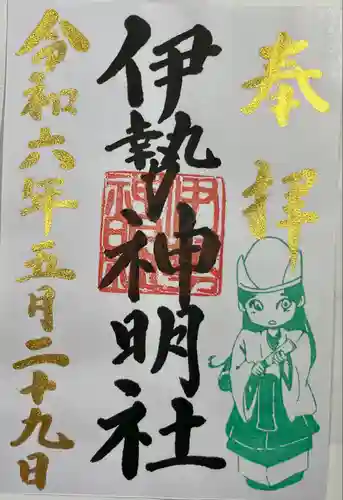 奉拝
伊勢神明社
令和六年五月二十九日